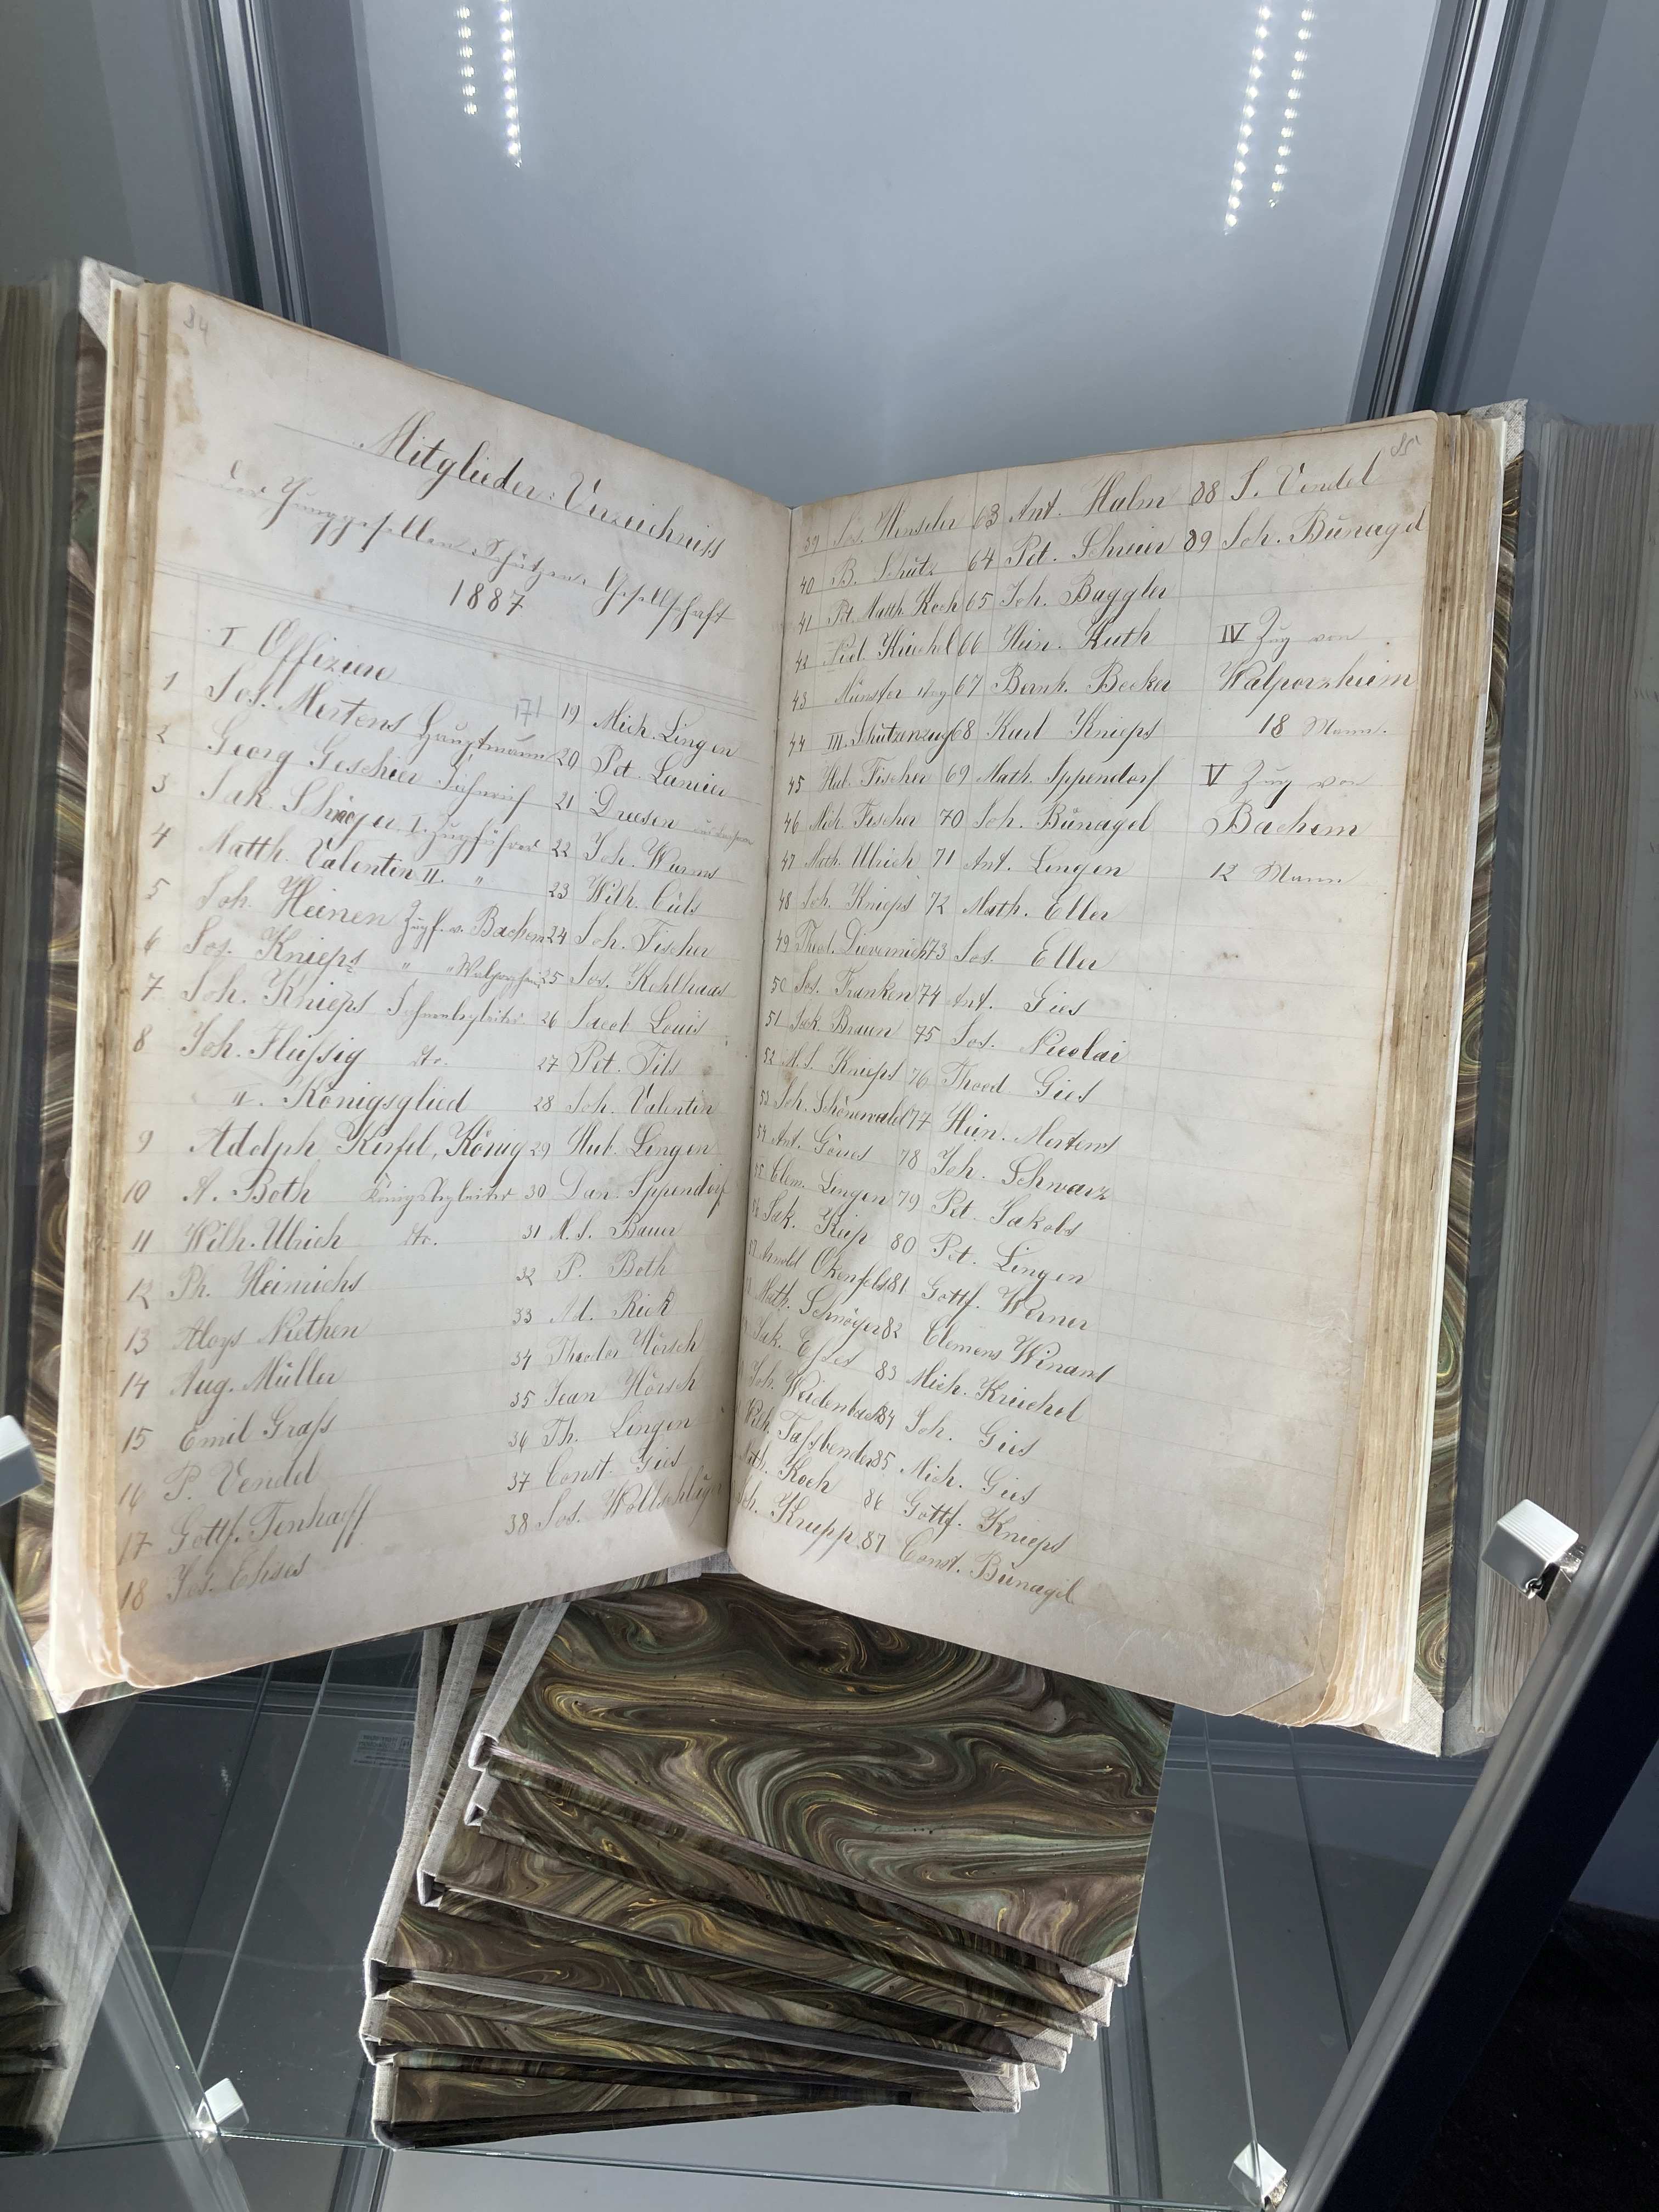 84
Mitglieder-Verzeichniss
der Junggesellen-Schützen-Gesellschaft
1887
I Offiziere
1 Jos. Mertens Hauptmann
2 Georg Geschier Fähnrich
3 Jak. Schröger I. Zugführer
4 Matth. Valentin II. "
5 Joh. Heinen Zugf. v. Bachem
6 Jos. Knieps " " Walporzheim
7 Joh. Knieps Fahnenbegleiter
8 Joh. Flüssig dto.
II. Königsglied
9 Adolph Kerfel, König
10 A. Both Königsbegleiter
11 Wilh. Ulrich dto.
12 Ph. Heinrichs
13 Aloys Niethen
14 Aug. Müller
15 Emil Grass
16 P. Vendel
17 Gottf. Tenhaff
18 Jos. Ehses
171
19 Mich. Lingen
20 Pet. Lanzier
21 Druesen
22 Joh. Wurms
23 Wilh. Cüls
24 Joh. Fischer
25 Jos. Kohlhaas
26 Jacob Louis
27 Pet. Fils
28 Joh. Valentin
29 Hub. Lingen
30 Dan. Ippendorf
31 M. J. Bauer
32 P. Both
33 Ad. Rick
34 Theodor Hörsch
35 Jean Hörsch
36 Th. Lingen
37 Const. Gies
38 Jos. Wollschläger
85
39 Jos. Henseler
40 B. Schütz
41 Pet. Matth. Koch
42 Kriechel
43 Münster
44 III. Schützenzug
45 Hub. Fischer
46 Mich. Fischer
47 Math. Ulrich
48 Joh. Knieps
49 Theod. Lievernich
50 Jos. Franken
51 Jak. Braun
52 M. J. Knieps
53 Joh. Schönewald
54 Ant. Görres
55 Clem. Lingen
Jak. Kiep
Arnold Okenfels
Math. Schröger
Jak. Esses
Joh. Weidenbach
Wilh. Fassbender
Koch
Joh. Krupp
63 Ant. Halm
64 Pet. Schreier
65 Joh. Baggeler
66 Hein. Kuth
67 Bernh. Becker
68 Karl Knieps
69 Math. Ippendorf
70 Joh. Bünagel
71 Ant. Lingen
72 Math. Eller
73 Jos. Eller
74 Ant. Gies
75 Jos. Nicolai
76 Theod Gies
77 Hein. Mertens
78 Joh. Schwarz
79 Pet. Jakobs
80 Pet. Lingen
81 Gottf. Werner
82 Clemens Winant
83 Mich. Kriechel
84 Joh. Gies
85 Mich. Gies
86 Gottf. Knieps
87 Const. Bünagel
88 J. Vendel
89 Joh. Bünagel
IV Zug von
Walporzheim
18 Mann.
V Zug von
Bachem
12 Mann